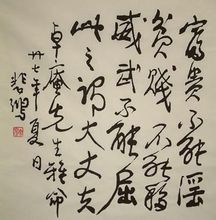 富贵不能淫
贫贱不能移
威武不能屈
此之谓大丈夫
卓庵先生雅命
卅七年夏日
悲鸿